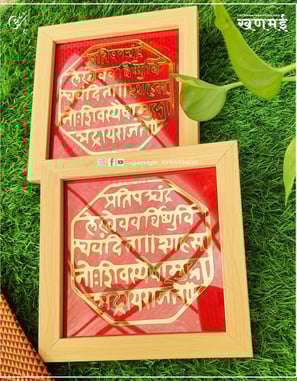 खणमई
प्रतिपच्चंद्र
लेखेववर्धिष्णुर्वि
श्ववंदिता॥शाहसू
नोःशिवस्यैषामुद्रा
भद्रायराजते
प्रतिपच्चंद्र
लेखेववर्धिष्णुर्वि
श्ववंदिता॥शाहसू
नोःशिवस्यैषामुद्रा
भद्रायराजते